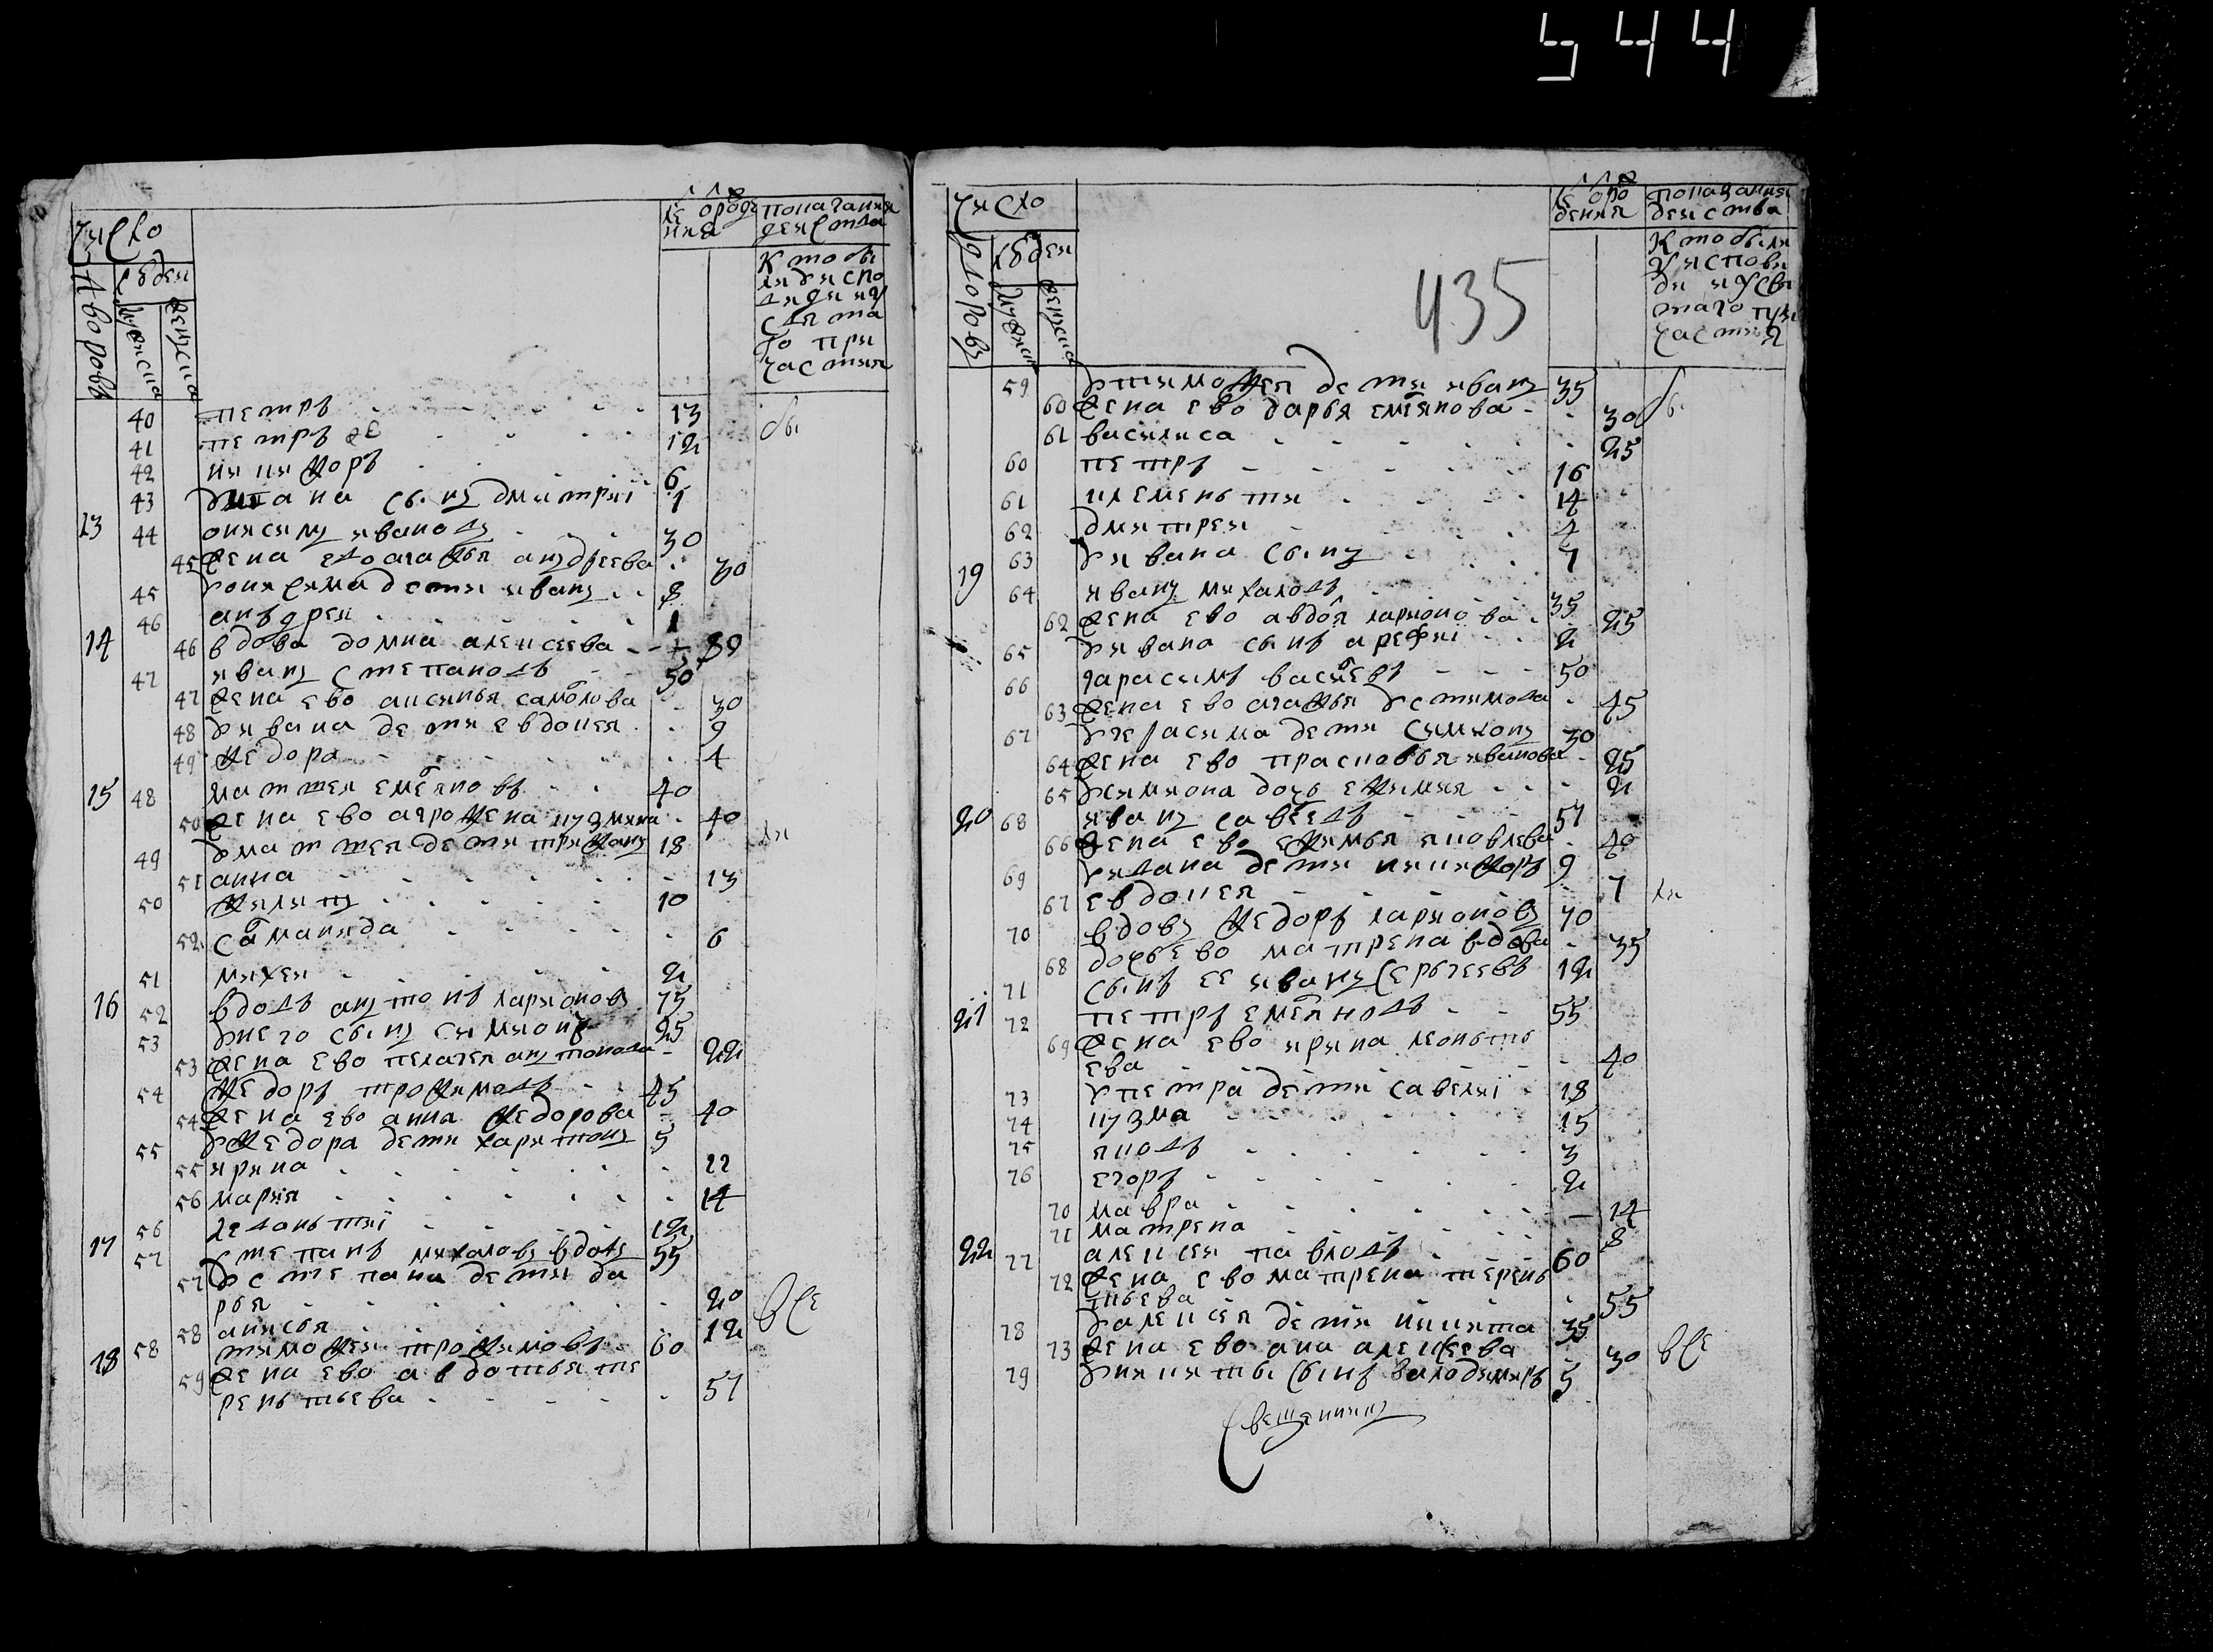 544
Число
лѣ
от рожде
ния
показания
действа
дворовъ
людеи
мужеска
женска
Кто бы
ли у испо
веди и у
свята
го при
частия
40 петръ 13 бы
41 петръ же 12
42 никифоръ 6
43 у потапа сынъ дмитрїи 1
13 44 онисимъ ивановъ 30
45 жена ево агафья андреева 30
45 у онисима дети иванъ 8
46 андреи 1
14 46 вдова домна алексеева 80
47 иванъ степановъ 50
47 жена ево аксинья самойлова 30
48 у ивана дети евдокея 9
49 федора 4
15 48 матфеи емельяновъ 40
50 жена ево агрофена кузмина 40
49 у матфея дети трифанъ 18 ли
51 анна 13
50 филипъ 10
52 саламанида 6
51 михеи 2
16 52 вдовъ антонъ ларионовъ 75
53 у него сынъ симионъ 25
53 жена ево пелагея антонова 22
54 федоръ трофимовъ 45
54 жена ево анна федорова 40
55 у федора дети харитонъ 5
55 ирина 22
56 мария 14
56 леонтїи 12
17 57 степанъ михаловъ вдовъ 55
57 у степана дети да
рья 20 все
58 анисья 12
18 58 тимофеи трофимовъ 60
59 жена ево авдотья те
рентьева 51
Число
лѣ
от ро
дения
показания
деиства
435
дворовъ
людеи
мужеска
женска
Кто были
у испове
ди и у свя
таго при
частия
59 у тимофея дети иванъ 35 бы
60 жена ево дарья емельянова 30
61 василиса 25
60 петръ 16
61 клементи 14
62 дмитреи 4
63 у ивана сынъ 1
19 64 иванъ михаловъ 35
62 жена ево авдотья ларионова 25
65 у ивана сынъ арефиї 2
66 гарасимъ васильевъ 50
63 жена ево агафья устимова 45
67 у герасима дети симионъ 30
64 жена ево прасковья иванова 25
65 у симиона дочь ефимия 2
20 68 иванъ савельевъ 51
66 жена ево ефимья яковлева 40
69 у ивана дети никифоръ 9
67 евдокея 7 ли
70 вдовъ федоръ ларионовъ 70
68 дочь ево матрена вдова 35
71 сынъ ее иванъ сергеевъ 12
21 72 петръ емельяновъ 55
69 жена ево ирина леонть
ева 40
73 у петра дети савелиї 18
74 кузма 15
75 яковъ 3
76 егоръ 2
70 мавра 14
71 матрена 8
22 77 алексеи павловъ 60
72 жена ево матрена терень
тьева 55
78 у алексея дети никита 35
73 жена ево ана алексеева 30 все
79 у никиты сынъ валодимиръ 5
Священникъ